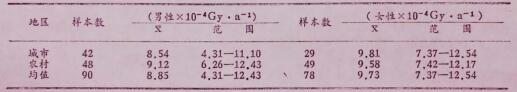 地区 样本数 (男性×10⁻⁴Gy·a⁻¹) 样本数 (女性×10⁻⁴Gy·a⁻¹)
X̄ 范围 X̄ 范围
城市 42 8.54 4.31—11.10 29 9.81 7.37—12.54
农村 48 9.12 6.26—12.43 49 9.58 7.42—12.17
均值 90 8.85 4.31—12.43 78 9.73 7.37—12.54